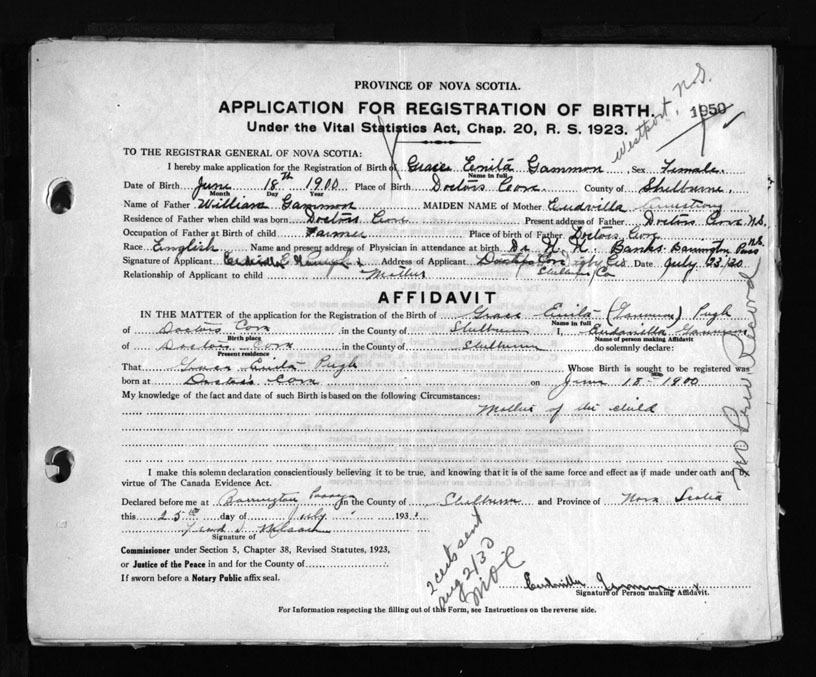 PROVINCE OF NOVA SCOTIA.
APPLICATION FOR REGISTRATION OF BIRTH. 1950
Westport, N.S.
Under the Vital Statistics Act, Chap. 20, R. S. 1923.
TO THE REGISTRAR GENERAL OF NOVA SCOTIA:
I hereby make application for the Registration of Birth of Grace Enita Gammon Sex Female.
Name in full
Date of Birth June 18th 1900 Place of Birth Doctors Cove County of Shelburne.
Month Day Year
Name of Father William Gammon MAIDEN NAME of Mother Eudvilla
Residence of Father when child was born Doctors Cove Present address of Father Doctors Cove N.S.
Occupation of Father at Birth of child Farmer Place of birth of Father Doctors Cove
Race English Name and present address of Physician in attendance at birth Dr. Banks Barrington Pass N.S.
Signature of Applicant Address of Applicant Doctors Cove Date July 23/30
Shelburne Co
Relationship of Applicant to child Mother
AFFIDAVIT
IN THE MATTER of the application for the Registration of the Birth of Grace Enita (Gammon) Pugh
Name in full
of Doctors Cove in the County of Shelburn I, Gammon
Birth place Name of person making Affidavit
of Doctors Cove in the County of Shelburn do solemnly declare:
Present residence
That Grace Enita Pugh Whose Birth is sought to be registered was
born at Doctors Cove on June 18th 1900
My knowledge of the fact and date of such Birth is based on the following Circumstances:
Mother of the child
I make this solemn declaration conscientiously believing it to be true, and knowing that it is of the same force and effect as if made under oath and by
virtue of The Canada Evidence Act.
Declared before me at Barrington Passage in the County of Shelburn and Province of Nova Scotia
this 25th day of July 193
Signature of
Commissioner under Section 5, Chapter 38, Revised Statutes, 1923,
or Justice of the Peace in and for the County of
If sworn before a Notary Public affix seal.
2 certs sent
Aug 2/30
Signature of Person making Affidavit.
For Information respecting the filling out of this Form, see Instructions on the reverse side.
No Prev Record